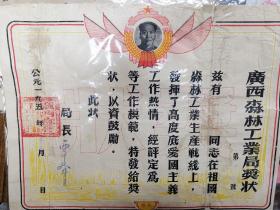 廣西森林工業局奬狀
第 號
兹有 同志在祖國
森林工業生產戰綫上，
發揮了高度底愛國主義
工作熱情，經評定為
等工作模範，特發給奬
狀，以資鼓勵。
此狀
局長
公元一九五 年 月 日